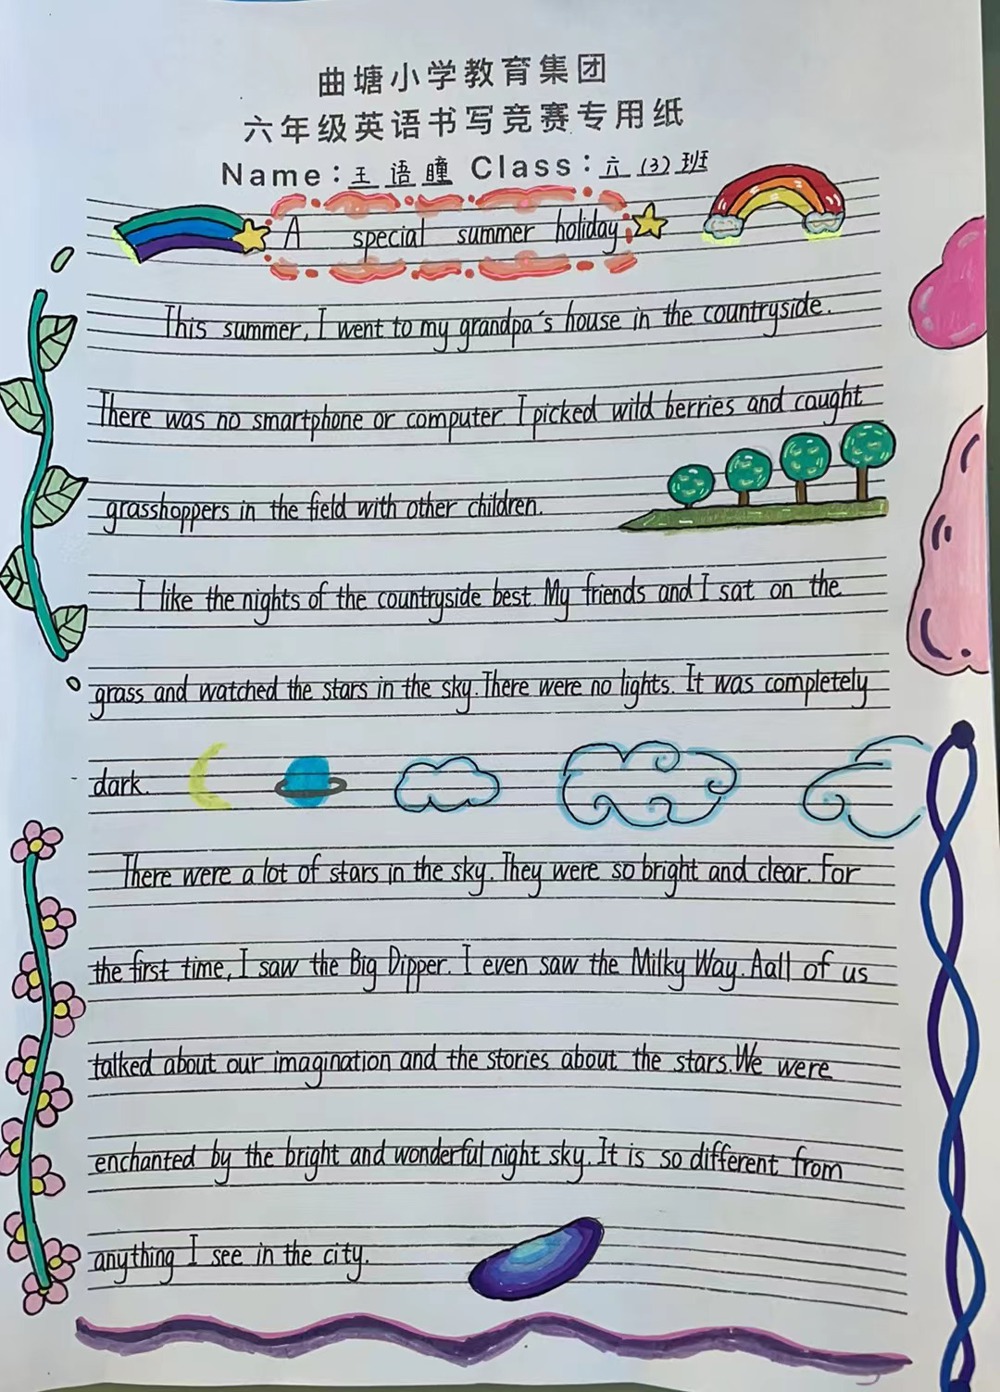 曲塘小学教育集团
六年级英语书写竞赛专用纸
Name：王语瞳 Class：六(3)班
A special summer holiday
This summer, I went to my grandpa's house in the countryside.
There was no smartphone or computer. I picked wild berries and caught
grasshoppers in the field with other children.
I like the nights of the countryside best. My friends and I sat on the
grass and watched the stars in the sky. There were no lights. It was completely
dark.
There were a lot of stars in the sky. They were so bright and clear. For
the first time, I saw the Big Dipper. I even saw the Milky Way. Aall of us
talked about our imagination and the stories about the stars. We were
enchanted by the bright and wonderful night sky. It is so different from
anything I see in the city.